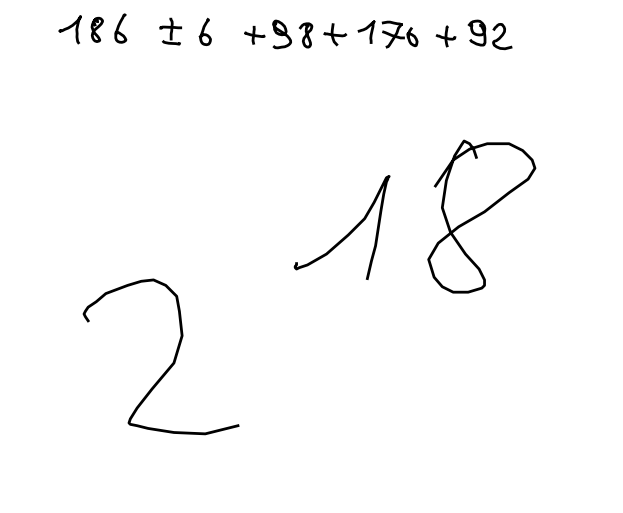 186 ± 6 +98+ 176 + 92
18
2